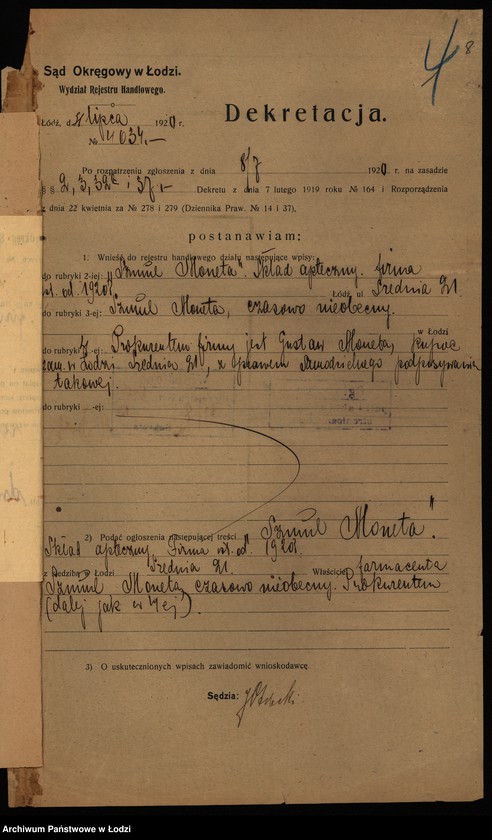 4 8
Sąd Okręgowy w Łodzi.
Wydział Rejestru Handlowego.
Łódź, d. 8 lipca 1920 r.
№ 4634.—
Dekretacja.
Po rozpatrzeniu zgłoszenia z dnia 8/7 1920 r. na zasadzie
§ § 2, 3, 32 i 37.— Dekretu z dnia 7 lutego 1919 roku № 164 i Rozporządzenia
z dnia 22 kwietnia za № 278 i 279 (Dziennika Praw. № 14 i 37),
postanawiam:
1. Wnieść do rejestru handlowego działu następujące wpisy:
do rubryki 2-iej: „Szmul Moneta". Skład apteczny. firma
ist. od. 1920r. Łódź, ul. Średnia 21.
do rubryki 3-ej: Szmul Moneta, czasowo nieobecny.
do rubryki 4-ej: Prokurentem firmy jest Gustaw Moneta, kupiec w Łodzi
zam. w Łodzi Średnia 21, z prawem samodzielnego podpisywania
takowej.
do rubryki -ej:
2) Podać ogłoszenia następującej treści „Szmul Moneta".
Skład apteczny. Firma ist. od. 1920r.
z siedzibą w Łodzi Średnia 21. Właściciel farmaceuta
Szmul Moneta, czasowo nieobecny. Prokurentem
(dalej jak w 4ej).
3) O uskutecznionych wpisach zawiadomić wnioskodawcę.
Sędzia:
Archiwum Państwowe w Łodzi